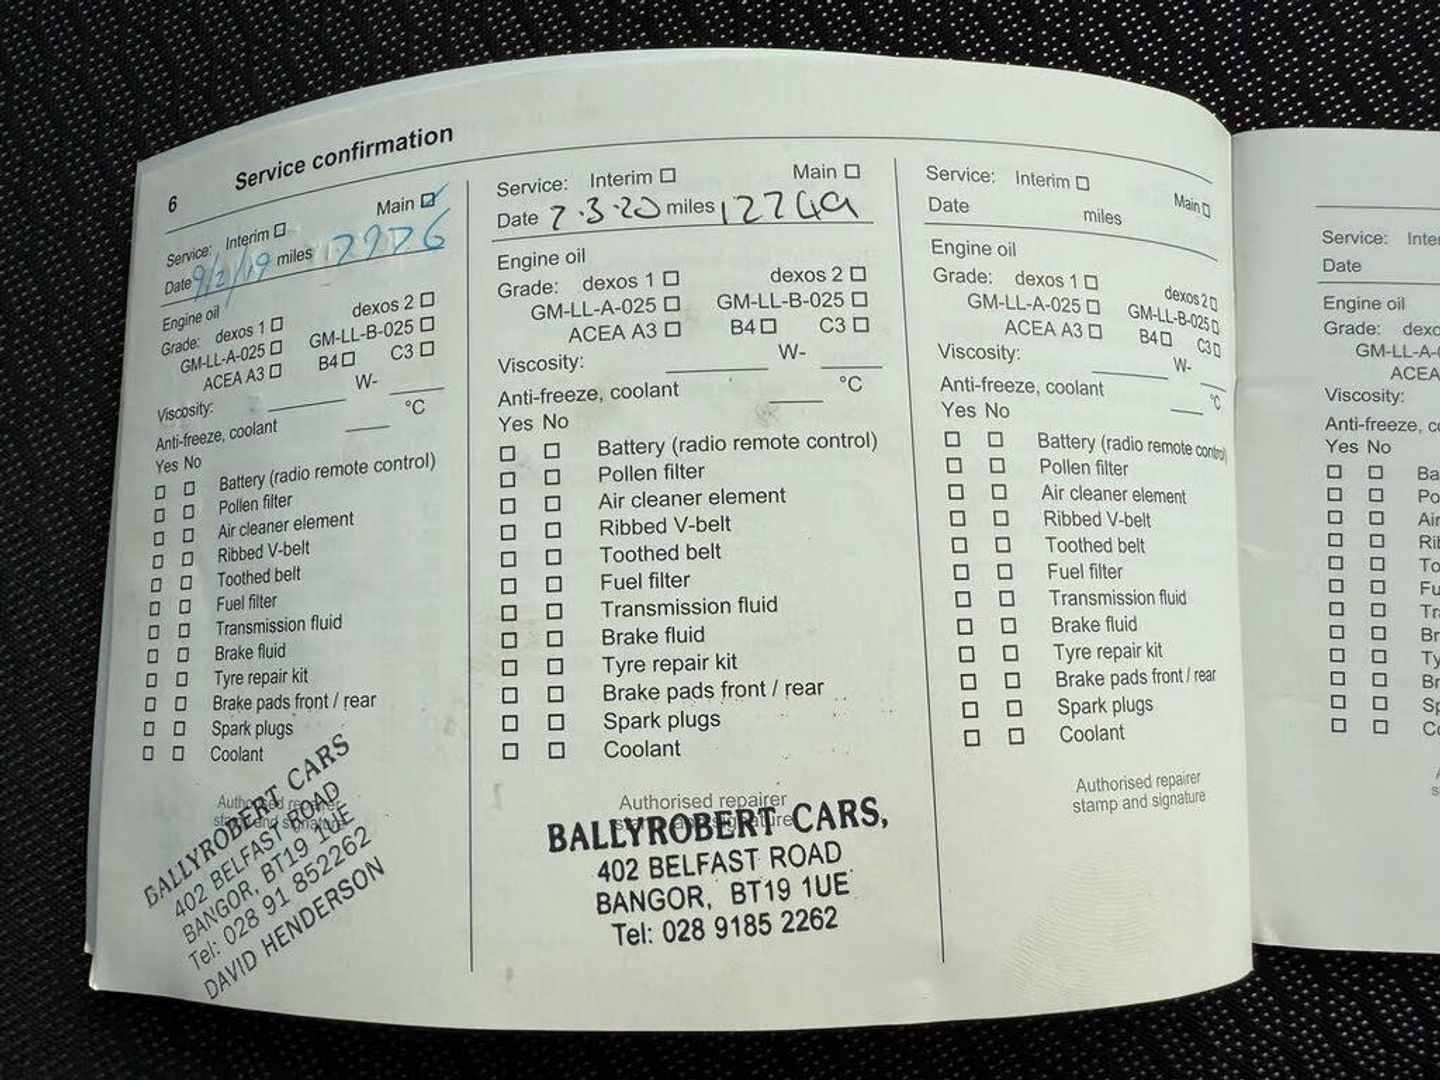 6
Service confirmation
Service: Interim Main
Date 9/2/19 miles
Engine oil
Grade: dexos 1 dexos 2
GM-LL-A-025 GM-LL-B-025
ACEA A3 B4 C3
Viscosity: W-
Anti-freeze, coolant °C
Yes No
Battery (radio remote control)
Pollen filter
Air cleaner element
Ribbed V-belt
Toothed belt
Fuel filter
Transmission fluid
Brake fluid
Tyre repair kit
Brake pads front / rear
Spark plugs
Coolant
Authorised repairer
stamp and signature
BALLYROBERT CARS
402 BELFAST ROAD
BANGOR, BT19 1UE
Tel: 028 91 852262
DAVID HENDERSON
Service: Interim Main
Date 7.3.20 miles 12749
Engine oil
Grade: dexos 1 dexos 2
GM-LL-A-025 GM-LL-B-025
ACEA A3 B4 C3
Viscosity: W-
Anti-freeze, coolant °C
Yes No
Battery (radio remote control)
Pollen filter
Air cleaner element
Ribbed V-belt
Toothed belt
Fuel filter
Transmission fluid
Brake fluid
Tyre repair kit
Brake pads front / rear
Spark plugs
Coolant
Authorised repairer
stamp and signature
BALLYROBERT CARS,
402 BELFAST ROAD
BANGOR, BT19 1UE
Tel: 028 9185 2262
Service: Interim Main
Date miles
Engine oil
Grade: dexos 1 dexos 2
GM-LL-A-025 GM-LL-B-025
ACEA A3 B4 C3
Viscosity: W-
Anti-freeze, coolant °C
Yes No
Battery (radio remote control)
Pollen filter
Air cleaner element
Ribbed V-belt
Toothed belt
Fuel filter
Transmission fluid
Brake fluid
Tyre repair kit
Brake pads front / rear
Spark plugs
Coolant
Authorised repairer
stamp and signature
Service: Inte
Date
Engine oil
Grade: dexo
GM-LL-A-
ACEA
Viscosity:
Anti-freeze, co
Yes No
Ba
Po
Air
Rib
To
Fu
Tr
Br
Ty
Br
Sp
Co